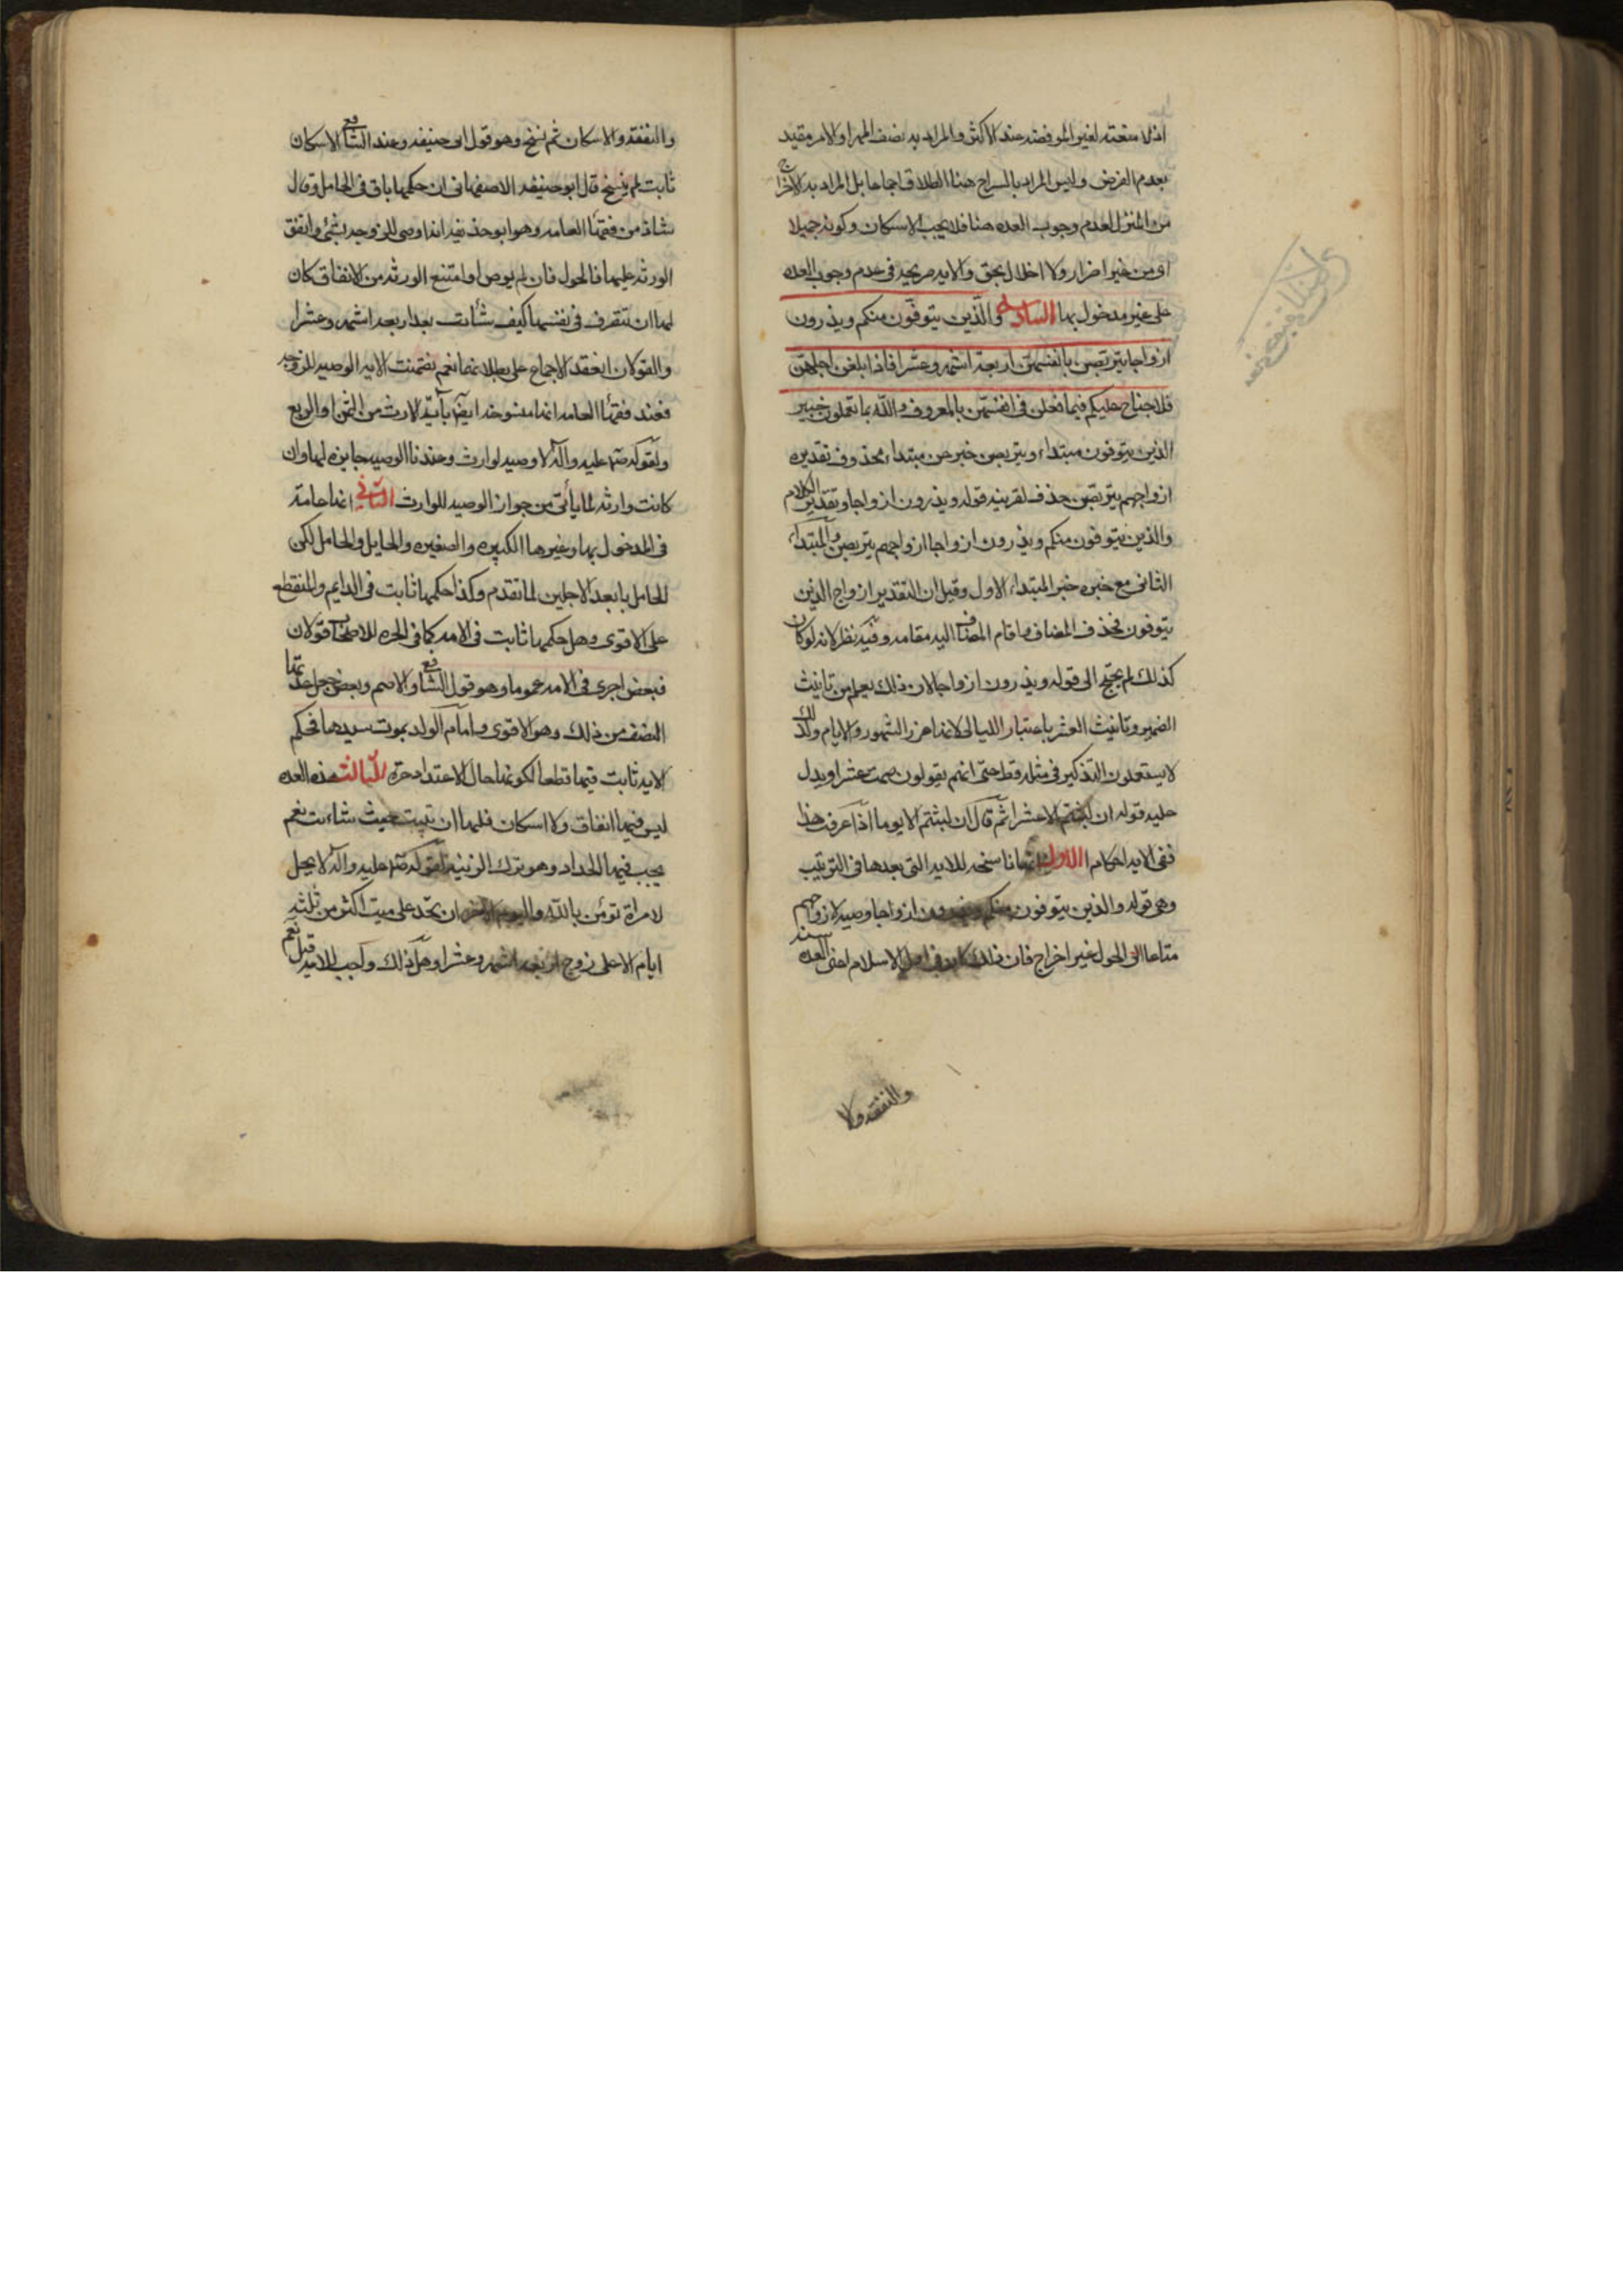 اذ لا متعة لغير المفوضة عند الاكثر والمراد به نصف المهر او الامر مقيد
بعدم الفرض وليس المراد بالسراح هنا الطلاق اجماعا بل المراد به الاخراج
من المنزل لعدم وجوب العده هنا فلا يجب الاسكان وكونه جميلا
اى من غير اضرار ولا اخلال بحق والايه صريحه فى عدم وجوب العده
على غير مدخول بها السادسة والّذين يتوفّون منكم ويذرون
ازواجا يتربصن بانفسهنّ اربعة اشهر وعشرا فاذا بلغن اجلهنّ
فلا جناح عليكم فيما فعلن فى انفسهنّ بالمعروف والله بما تعملون خبير
الذين يتوفون مبتداء ويتربصن خبر عن مبتداء محذوف تقديره
ازواجهم يتربصن حذف لقرينه قوله ويذرون ازواجا وتقدير الكلام
والذين يتوفون منكم ويذرون ازواجا ازواجهم يتربصن والمبتداء
الثانى مع خبره خبر المبتداء الاول وقيل ان التقدير ازواج الذين
يتوفون فحذف المضاف واقام المضاف اليه مقامه وفيه نظر لانه لو كان
كذلك لم يحتج الى قوله ويذرون ازواجا لان ذلك يعلم من تانيث
الضمير وتانيث العشر باعتبار الليالى لانها غرر الشهور والايام ولذلك
لا يستعملون التذكير فى مثله قط حتى انهم يقولون صمت عشرا ويدل
عليه قوله ان لبثتم الا عشرا ثم قال ان لبثتم الا يوما اذا عرفت هذا
ففى الايه احكام الاول انها ناسخه للايه التى بعدها فى الترتيب
وهى قوله والذين يتوفون منكم ويذرون ازواجا وصيه لازواجهم
متاعا الى الحول غير اخراج فان ذلك كان فى اول الاسلام اعنى العده سنه
والنفقه ولا
والنفقه والاسكان ثم نسخ وهو قول ابى حنيفه وعند الشافع الاسكان
ثابت لم ينسخ قال ابو حنيفه الاصفهانى ان حكمها باق فى الحامل وقال
شاذ من فقهاء العامه وهو ابو حذيفه انه اوصى للزوجه بشئ وانفق
الورثه عليها فالحول فان لم يوص او امتنع الورثه من الانفاق كان
لها ان تتصرف فى نفسها كيف شأت بعد اربعه اشهر وعشرا
والقولان انعقد الاجماع على بطلانهما نعم تضمنت الايه الوصيه للزوجه
فعند فقهاء العامه انها منسوخه ايضا بآية الارث من الثمن او الربع
ولقوله صلى الله عليه وآله لا وصيه لوارث وعندنا الوصيه جايزه لها وان
كانت وارثه لما يأتى من جواز الوصيه للوارث الثانى انها عامة
فى المدخول بها وغيرها الكبيره والصغيره والحايل والحامل لكن
الحامل بابعد الاجلين لما تقدم وكذا حكمها ثابت فى الدايم والمنقطع
على الاقوى وهل حكمها ثابت فى الامه كما فى الحره للاصحاب قولان
فبعض اجرى فى الامه عموما وهو قول الشافع والاصم وبعض جعل عدتها
النصف من ذلك وهو الاقوى واما ام الولد بموت سيدها فحكم
الايه ثابت فيها قطعا لكونها حال الاعتداد حرة الثالث هذه العده
ليس فيها انفاق ولا اسكان فلها ان تبيت حيث شاءت نعم
يجب فيها الحداد وهو ترك الزينه لقوله صلى الله عليه وآله لا يحل
لامراة تؤمن بالله واليوم الاخر ان تحد على ميت اكثر من ثلثه
ايام الا على زوج اربعه اشهر وعشرا وهل ذلك واجب للامه قيل نعم